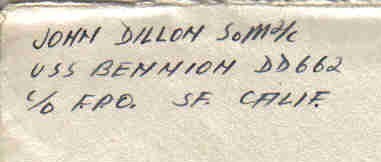 JOHN DILLON SoM2/c
USS BENNION DD662
c/o F.P.O. SF. CALIF.